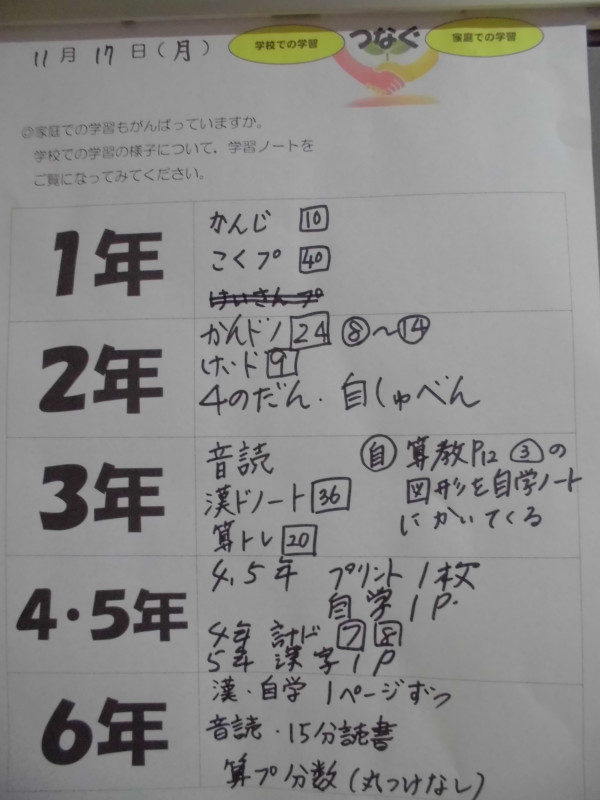 11月17日(月)
学校での学習
つなぐ
家庭での学習
◎家庭での学習もがんばっていますか。
学校での学習の様子について，学習ノートを
ご覧になってみてください。
1年
かんじ 10
こくプ 40
けいさんプ
2年
かんドノ 24 ⑧～⑭
けいド 9
4のだん・自しゅべん
3年
音読
漢ドノート 36
算トレ 20
自 算教P12 ③の
図形を自学ノート
にかいてくる
4・5年
4,5年 プリント1枚
自学1P.
4年 計ド 7 8
5年 漢字1P
6年
漢・自学 1ページずつ
音読・15分読書
算プ分数(丸つけなし)